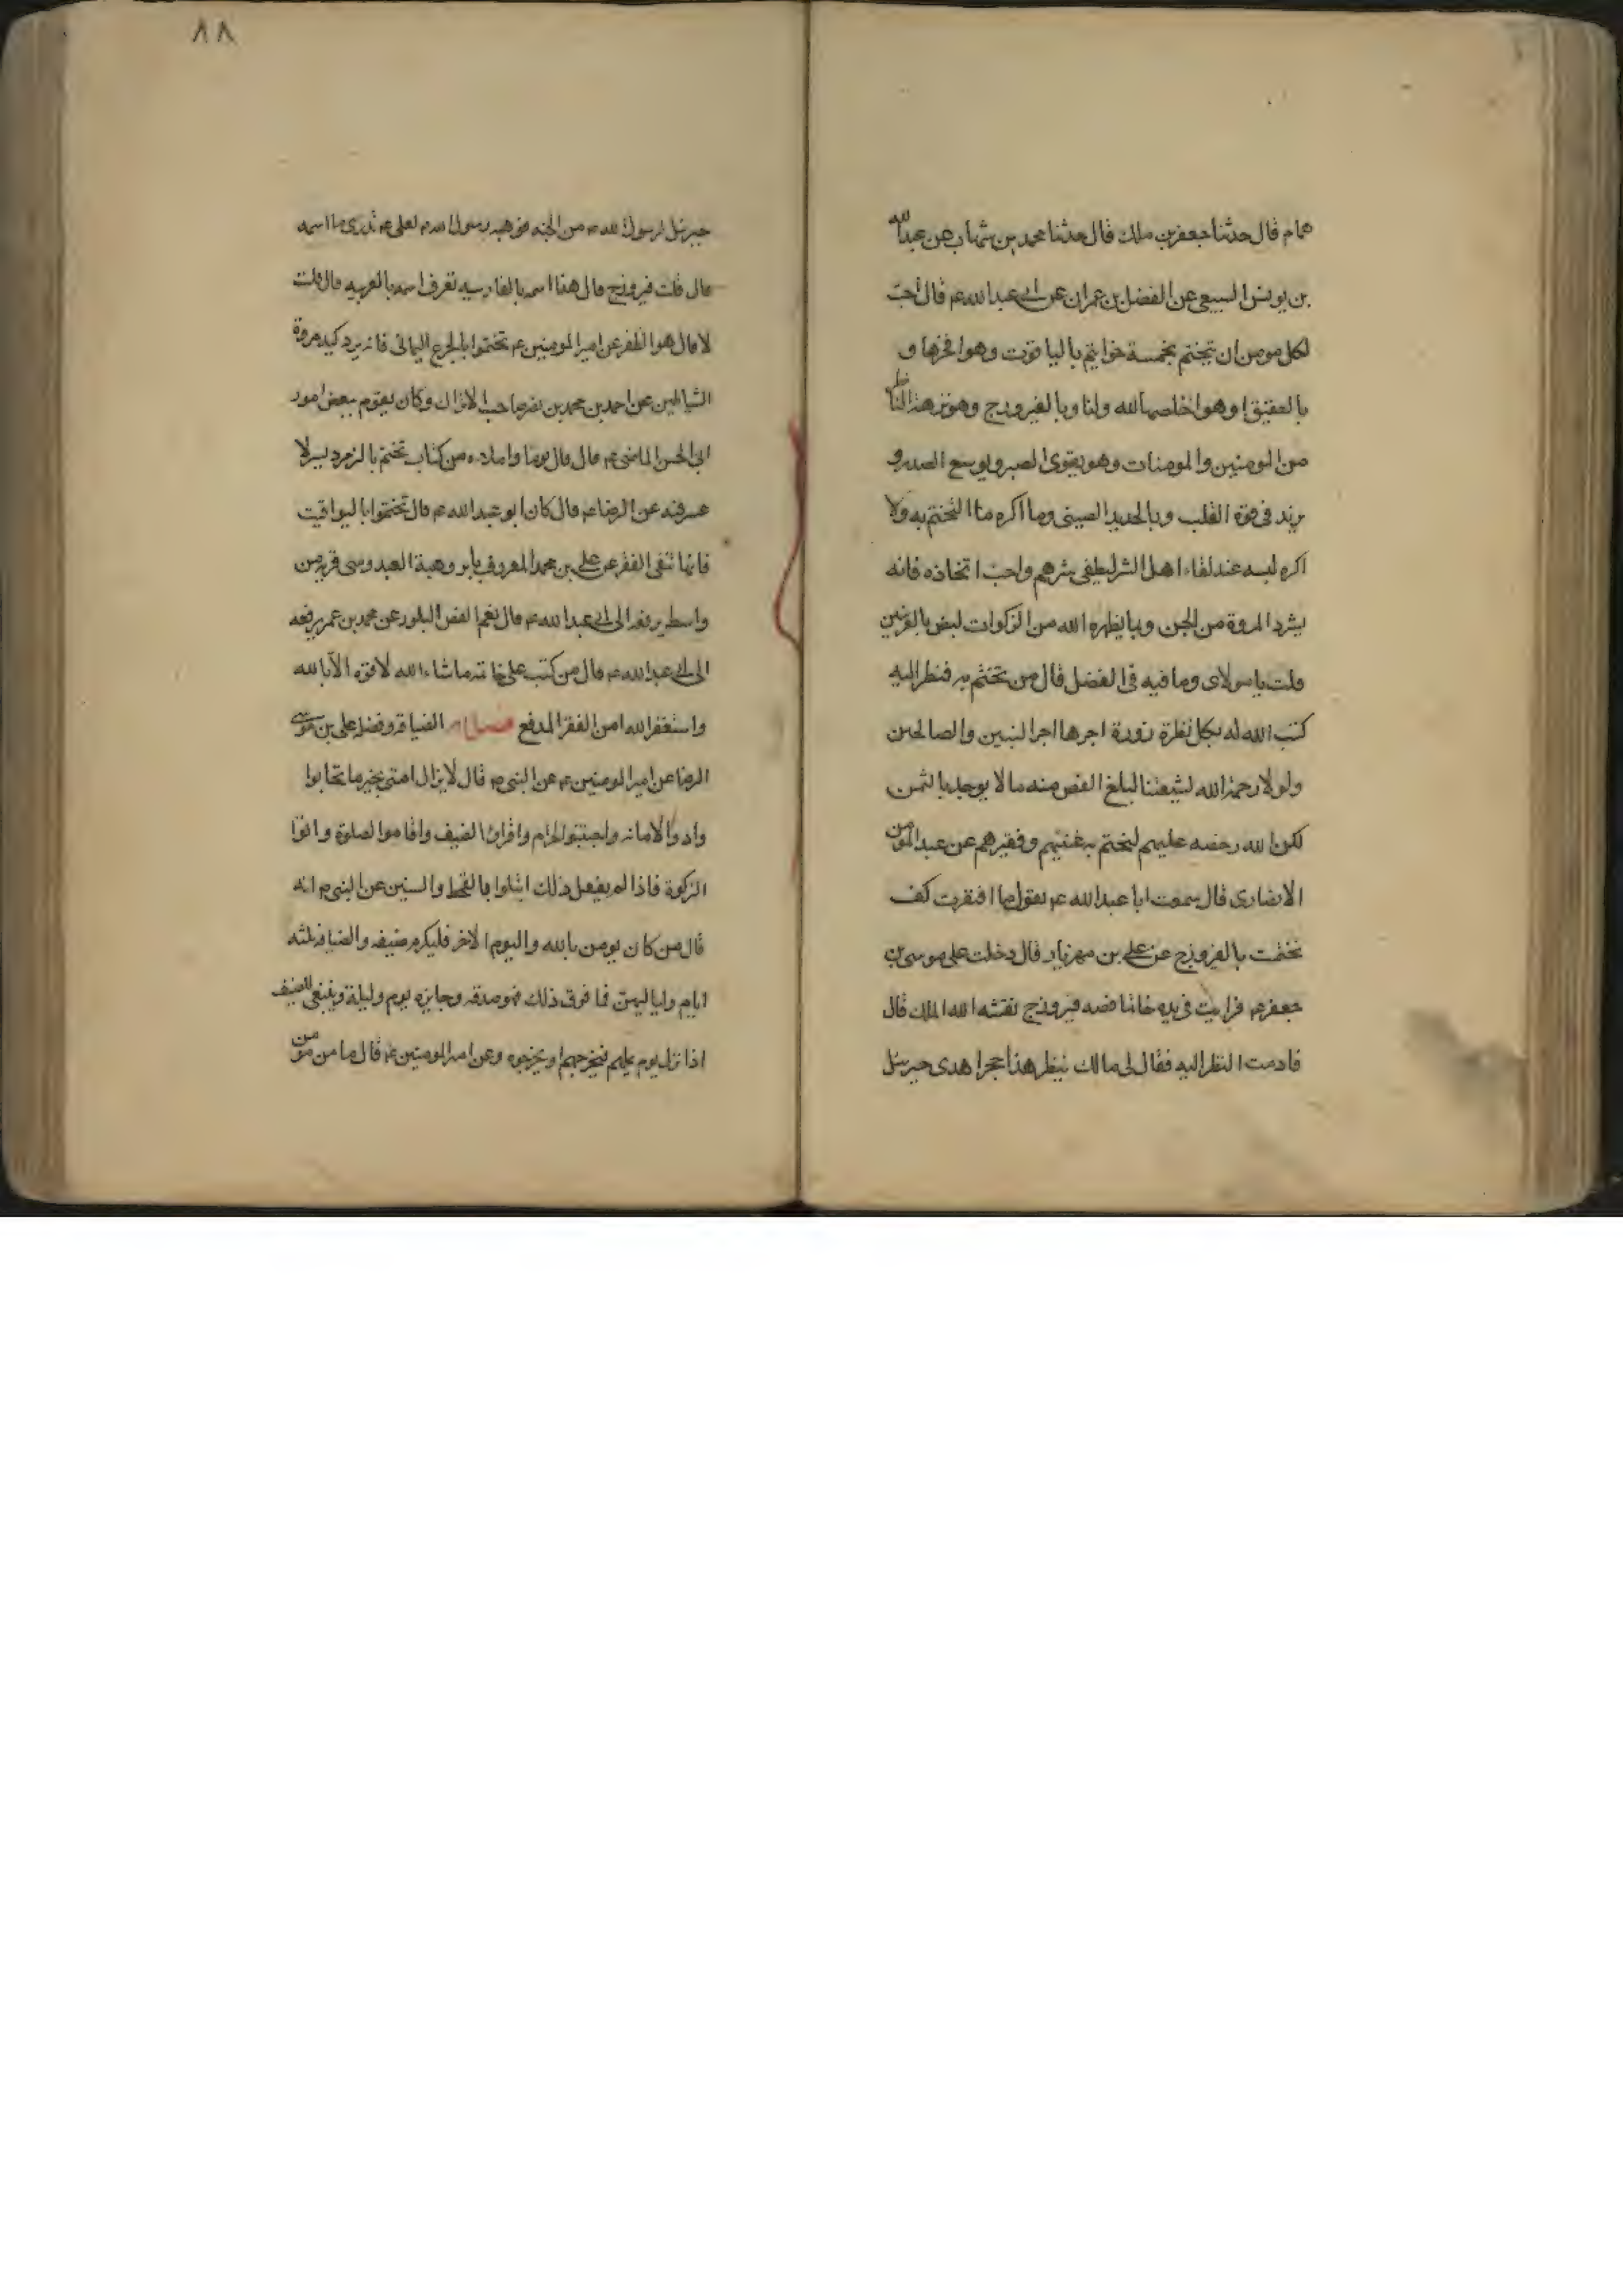 همام قال حدثنا جعفر بن ملك قال حدثنا محمد بن شهاب عن عبدالله
بن يونس السبيعي عن الفضل بن عمران عن ابى عبدالله ع قال احب
لكل مومن ان يتختم بخمسة خواتيم بالياقوت وهو افخرها و
بالعقيق وهو اخلصها لله ولنا وبالفيروزج وهو نزهة الناظر
من المومنين والمومنات وهو يقوى البصر ويوسع الصدر و
يزيد فى قوة القلب وبالحديد الصينى وما اكره ما التختم به ولا
اكره لبسه عند لقاء اهل الشر ليطفى شرهم واحب اتخاذه فانه
يشرد المردة من الجن وبما يظهره الله من الزكوات البيض بالغريين
قلت يا مولاى وما فيه فى الفضل قال من تختم به فنظر اليه
كتب الله له بكل نظرة زورة اجرها اجر النبيين والصالحين
ولولا رحمة الله لشيعتنا لبلغ الفص منه ما لا يوجد بالثمن
لكن الله رخصه عليهم ليختم به غنيهم وفقيرهم عن عبد المومن
الانصارى قال سمعت ابا عبدالله ع يقول ما افتقرت كف
تختمت بالفيروزج عن على بن مهزيار قال دخلت على موسى بن
جعفر ع فرايت فى يده خاتما فصه فيروزج نقشه الله الملك قال
فادمت النظر اليه فقال لى مالك تنظر هذا حجر اهدى جبرئيل
٨٨
جبرئيل لرسول الله ص من الجنه فوهبه رسول الله ص لعلى ع تدرى ما اسمه
قال قلت فيروزج قال هذا اسمه بالفارسيه تعرف اسمه بالعربيه قال قلت
لا قال هو الظفر عن امير المومنين ع تختموا بالجزع اليمانى فانه يرد كيد مردة
الشياطين عن احمد بن محمد بن نصر صاحب الانزال وكان يقوم ببعض امور
ابى الحسن الماضى ع قال قال يوما واملاه من كتاب تختم بالزمرد يسر لا
عسر فيه عن الرضا ع قال كان ابو عبدالله ع قال تختموا باليواقيت
فانها تنفى الفقر عن على بن محمد المعروف بابن وهبة العبدوسى قرية من
واسط يرفعه الى ابى عبدالله ع قال نعم الفص البلور عن محمد بن عمر يرفعه
الى ابى عبدالله ع قال من كتب على خاتمه ماشاء الله لا قوة الا بالله
واستغفر الله امن الفقر المدقع فصل الضيافة وفضله على بن موسى
الرضا عن امير المومنين ع عن النبى ص قال لا يزال امتى بخير ما تحابوا
وادوا الامانه واجتنبوا الحرام واقراوا الضيف واقاموا الصلوة واتوا
الزكوة فاذا لم يفعل ذلك ابتلوا بالقحط والسنين عن النبى ص انه
قال من كان يومن بالله واليوم الاخر فليكرم ضيفه والضيافة ثلثه
ايام ولياليهن فما فوق ذلك فهو صدقه وجايزه يوم وليلة وينبغى للضيف
اذا نزل بقوم يملهم فيخرجهم او يخرجوه وعن امير المومنين ع قال ما من مومن